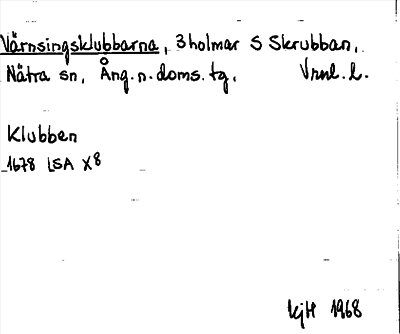 Värnsingsklubbarna, 3 holmar S Skrubban,
Nätra sn, Ång.n.doms.tg. Vrnl.l.
Klubben
1678 LSA X8
KjH 1968